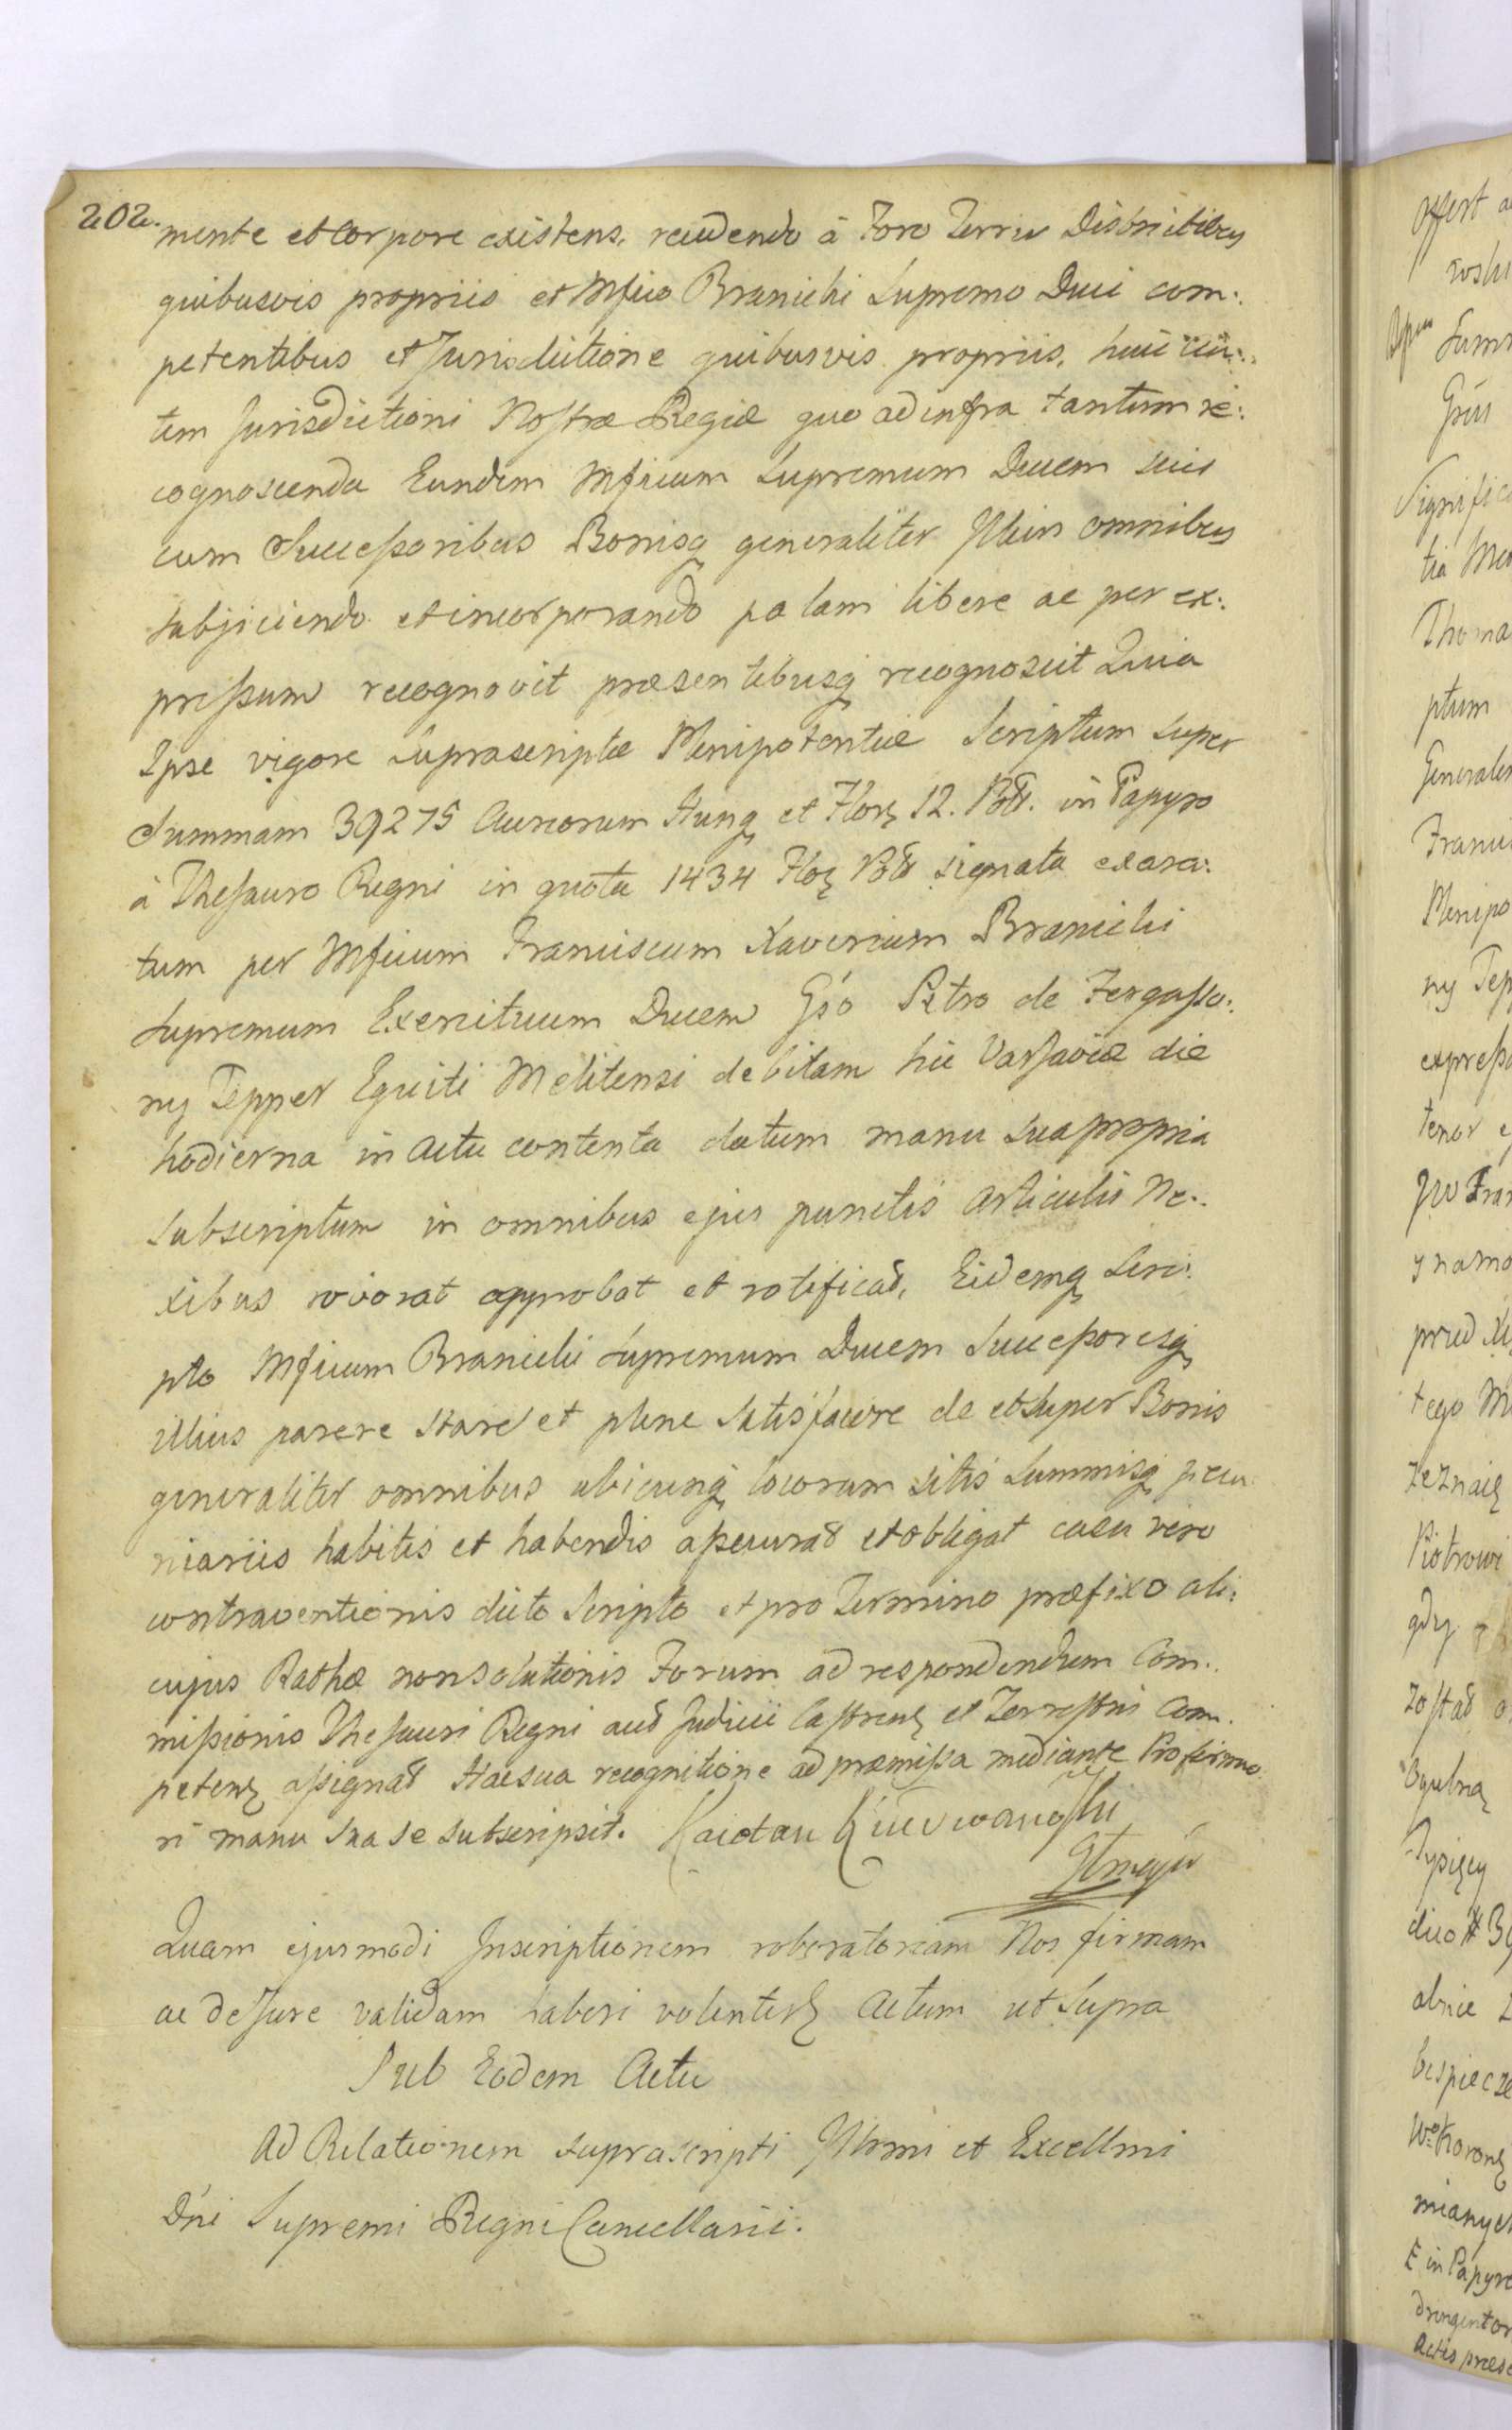 202.
mente et Corpore existens, recedendo à Foro Terris Districtibus
quibusvis propriis et Mfico Branicki Supremo Duci com:
petentibus et Jurisdictione quibusvis propriis, huic au:
tem Jurisdictioni Nostræ Regiæ quo ad infra tantum re:
cognoscenda Eundem Mficum Supremum Ducem suis
cum Successoribus Bonisq generaliter Illius omnibus
subjiciendo et incorporando palam libere ac per ex:
pressum recognovit præsentibusq recognoscit Quia
Ipse vigore supra scriptæ Plenipotentiæ Scriptum super
Summam 39275 Aureorum Hung et Flor 12. Poll. in Papyro
à Thesauro Regni in quota 1434 Flor Poll signata exara:
tum per Mficum Franciscum Xaverium Branicki
Supremum Exercituum Ducem Gso Petro de Fergusso:
ny Tepper Equiti Melitensi debitam hic Varsaviæ die
hodierna in Actu contenta datum manu sua propria
subscriptum in omnibus ejus punctis Articulis Ne:
xibus roborat approbat et ratificat, Eidemq Scri:
pto Mficum Branicki Supremum Ducem Successoresq
illius parere stare et plene satisfacere de et super Bonis
generaliter omnibus ubicunq locorum sitis Summisq pecu
niariis habitis et habendis assecurat et obligat casu vero
contraventionis dicto Scripto et pro Termino præfixo ali:
cujus Rathæ non solutionis Forum ad respondendum Com:
missionis Thesauri Regni aut Judicii Castrens et Terrestris Com:
petens assignat Hac sua recognitione ad præmissa mediante Pro firmo
ri manu sua se subscripsit. Kaietan
Quam ejusmodi Inscriptionem roboratoriam Nos firmam
ac de Jure validam haberi volentes Actum ut Supra
Sub Eodem Actu
Ad Relationem suprascripti Illrmi et Excellmi
Dni Supremi Regni Cancellarii.
offert
Thoma
ptum
ny Tep
y namo
tego
Piotrowi
gdy
zostad
mianych
in Papyro
Actis præse